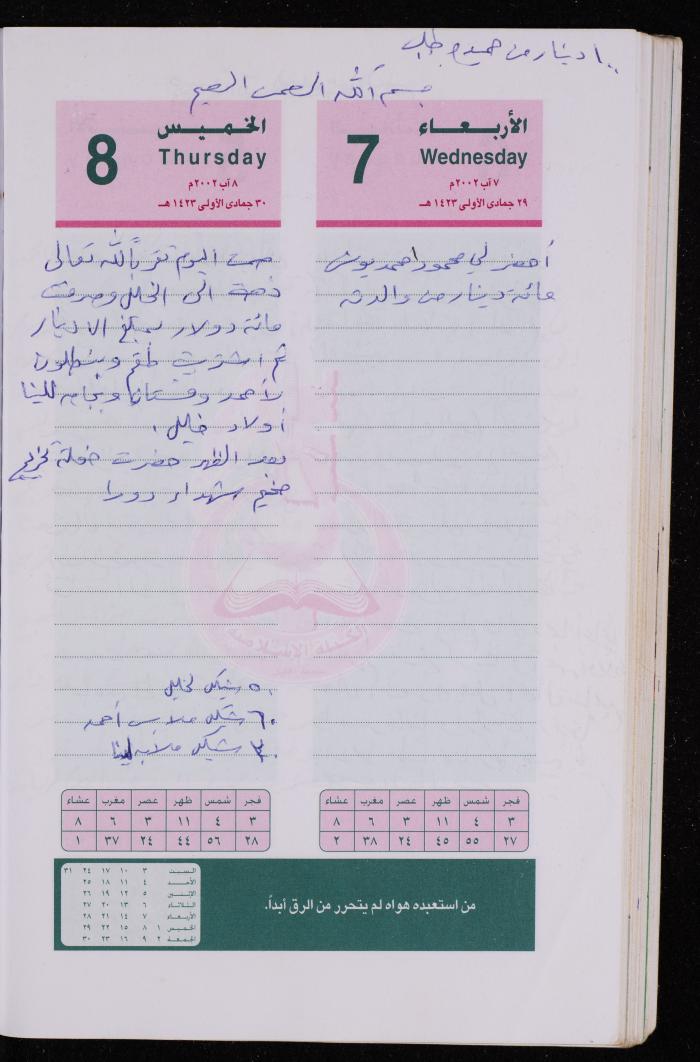 ١٠٠ دينار من حميدة طلب
بسم الله الرحمن الرحيم
الأربعاء
7
Wednesday
٧ آب ٢٠٠٢م
٢٩ جمادى الأولى ١٤٢٣ هـ
أحضر لي محمود احمد يونس
مائة دينار من والدته
الخميس
8
Thursday
٨ آب ٢٠٠٢م
٣٠ جمادى الأولى ١٤٢٣ هـ
صمت اليوم تقرباً لله تعالى
ذهبت الى الخليل وصرفت
مائة دولار بمبلغ الا دينار
ثم اشتريت طقم وبنطلون
لأحمد وفستان وبجامه للينا
أولاد خليل .
بعد الظهر حضرت حفلة تخريج
مخيم شهداء دورا
٥٠ شيكل لخليل
٦٠ شيكل ملابس أحمد
٣٠ شيكل ملابس لينا
الكتلة الإسلامية
فجر شمس ظهر عصر مغرب عشاء
٣ ٤ ١١ ٣ ٦ ٨
٢٧ ٥٥ ٤٥ ٢٤ ٣٨ ٢
فجر شمس ظهر عصر مغرب عشاء
٣ ٤ ١١ ٣ ٦ ٨
٢٨ ٥٦ ٤٤ ٢٤ ٣٧ ١
من استعبده هواه لم يتحرر من الرق أبداً.
السبت ٣ ١٠ ١٧ ٢٤ ٣١
الأحد ٤ ١١ ١٨ ٢٥
الإثنين ٥ ١٢ ١٩ ٢٦
الثلاثاء ٦ ١٣ ٢٠ ٢٧
الأربعاء ٧ ١٤ ٢١ ٢٨
الخميس ١ ٨ ١٥ ٢٢ ٢٩
الجمعة ٢ ٩ ١٦ ٢٣ ٣٠